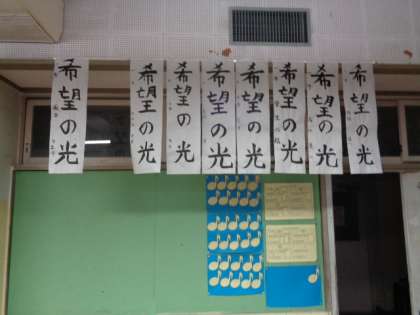 希望の光
希望の光
希望の光
希望の光
希望の光
希望の光
希望の光
希望の光